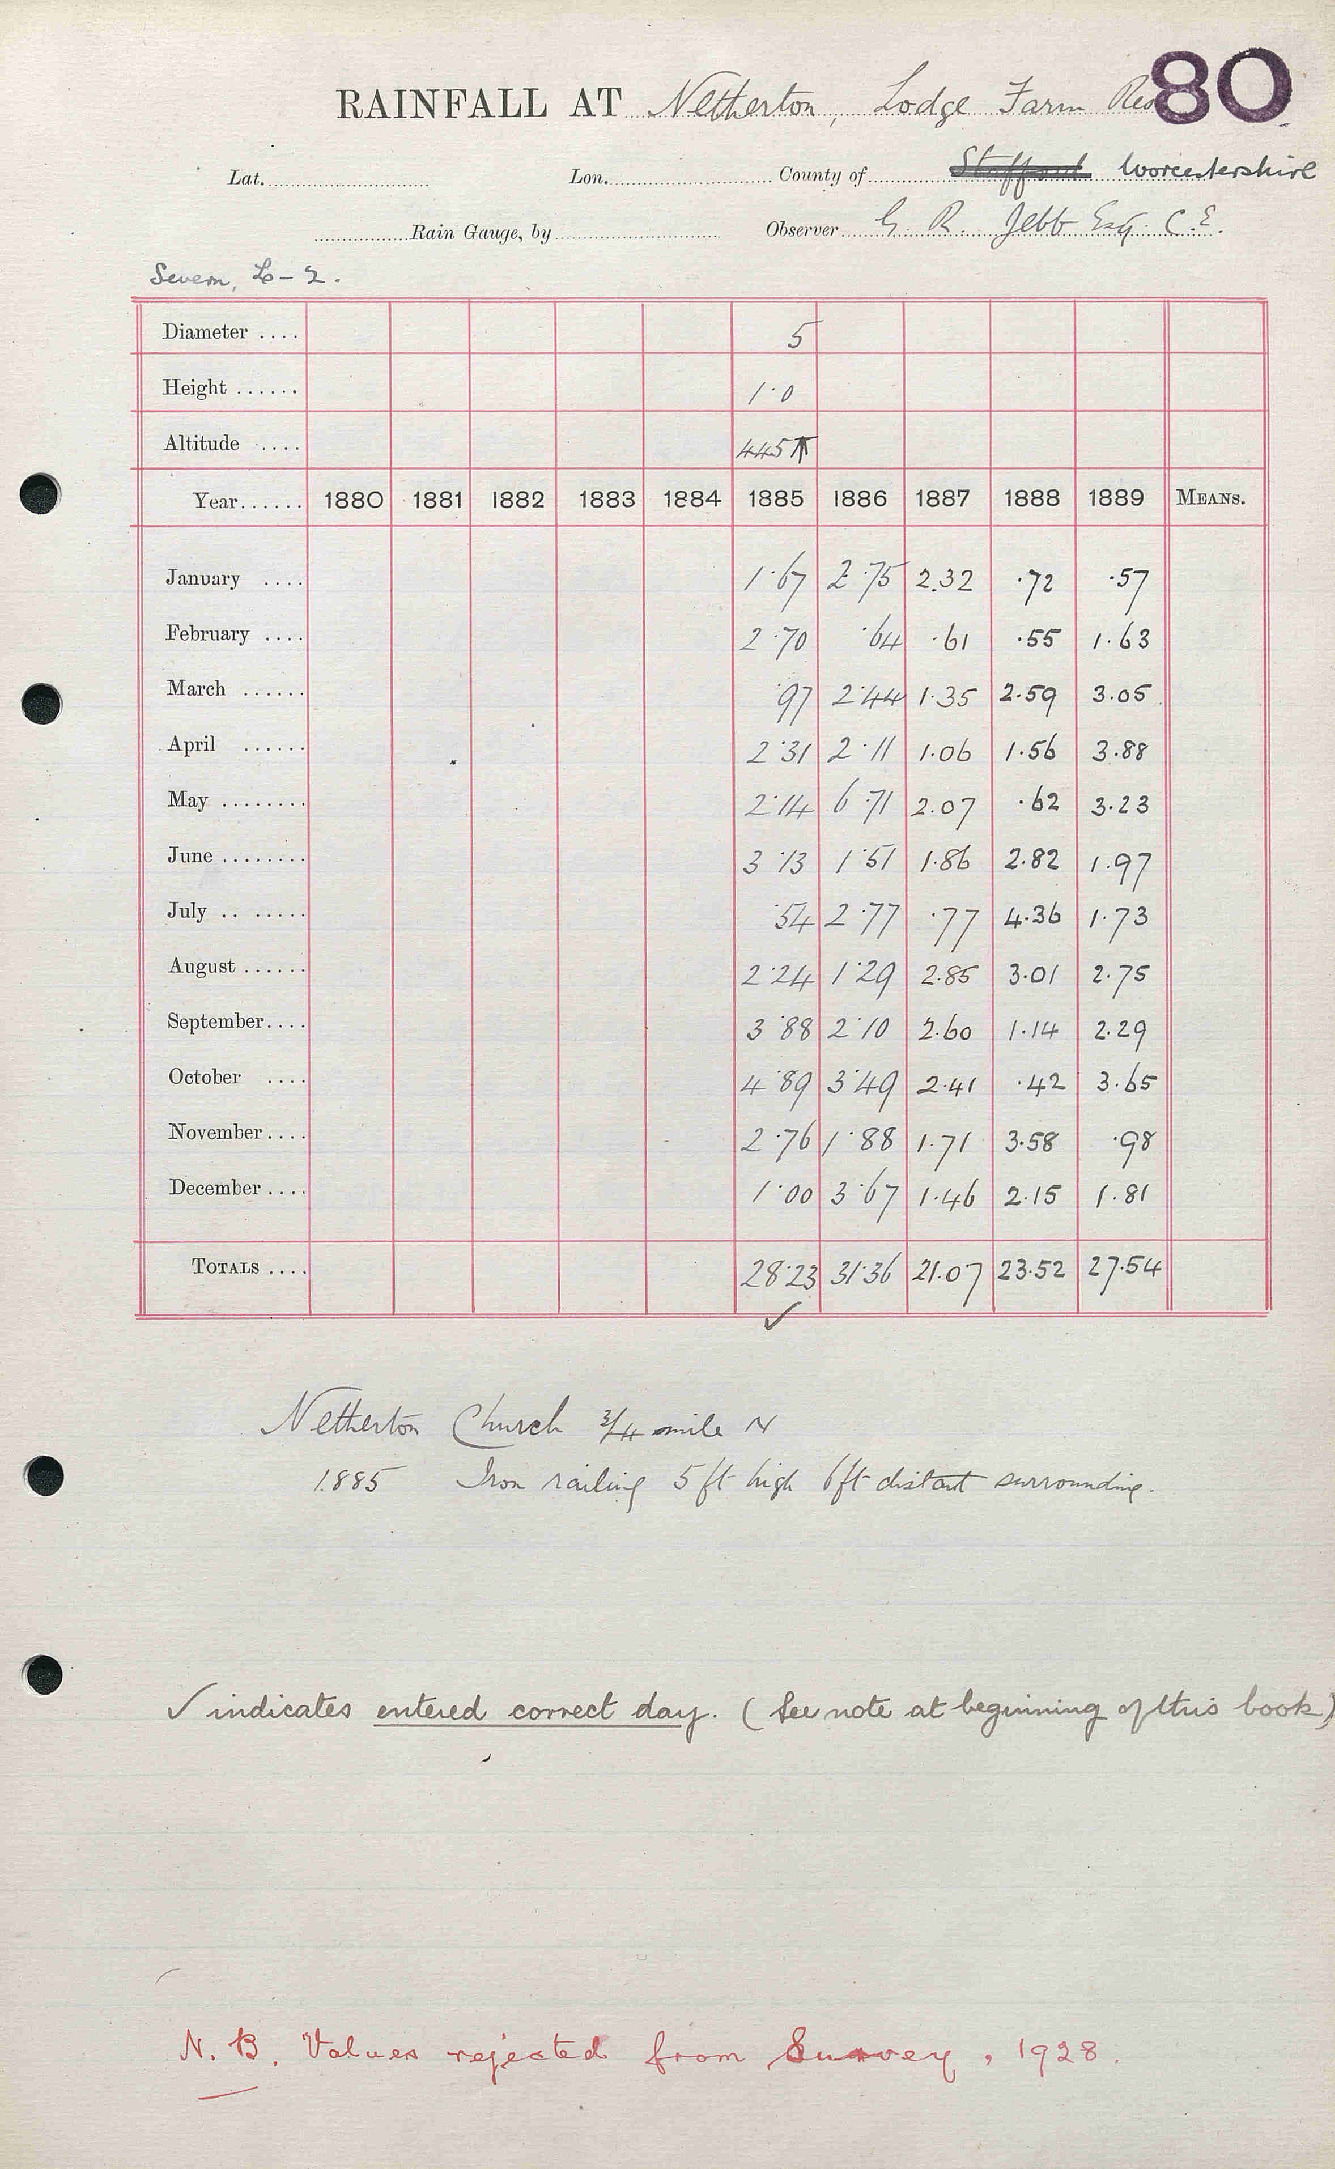 80
RAINFALL AT Netherton, Lodge Farm Res
Lat. Lon. County of Stafford Worcestershire
Rain Gauge, by Observer G. R. Jebb Esq. C.E.
Severn, L-2.
Diameter .... 5
Height ...... 1·0
Altitude .... 445
Year...... 1880 1881 1882 1883 1884 1885 1886 1887 1888 1889 MEANS.
January .... 1·67 2·75 2.32 ·72 ·57
February .... 2·70 ·64 ·61 ·55 1·63
March ...... ·97 2·44 1·35 2·59 3·05
April ...... 2·31 2·11 1·06 1·56 3·88
May ........ 2·14 6·71 2·07 ·62 3·23
June ........ 3·13 1·51 1·86 2·82 1·97
July .. ..... ·54 2·77 ·77 4·36 1·73
August ...... 2·24 1·29 2·85 3·01 2·75
September.... 3·88 2·10 2·60 1·14 2·29
October .... 4·89 3·49 2·41 ·42 3·65
November .... 2·76 1·88 1·71 3·58 ·98
December .... 1·00 3·67 1·46 2·15 1·81
TOTALS .... 28·23 31·36 21·07 23·52 27·54
✓
Netherton Church 3/4 mile N
1885 Iron railing 5 ft high 6 ft distant surrounding.
✓ indicates entered correct day. (See note at beginning of this book)
N.B. Values rejected from Survey, 1928.